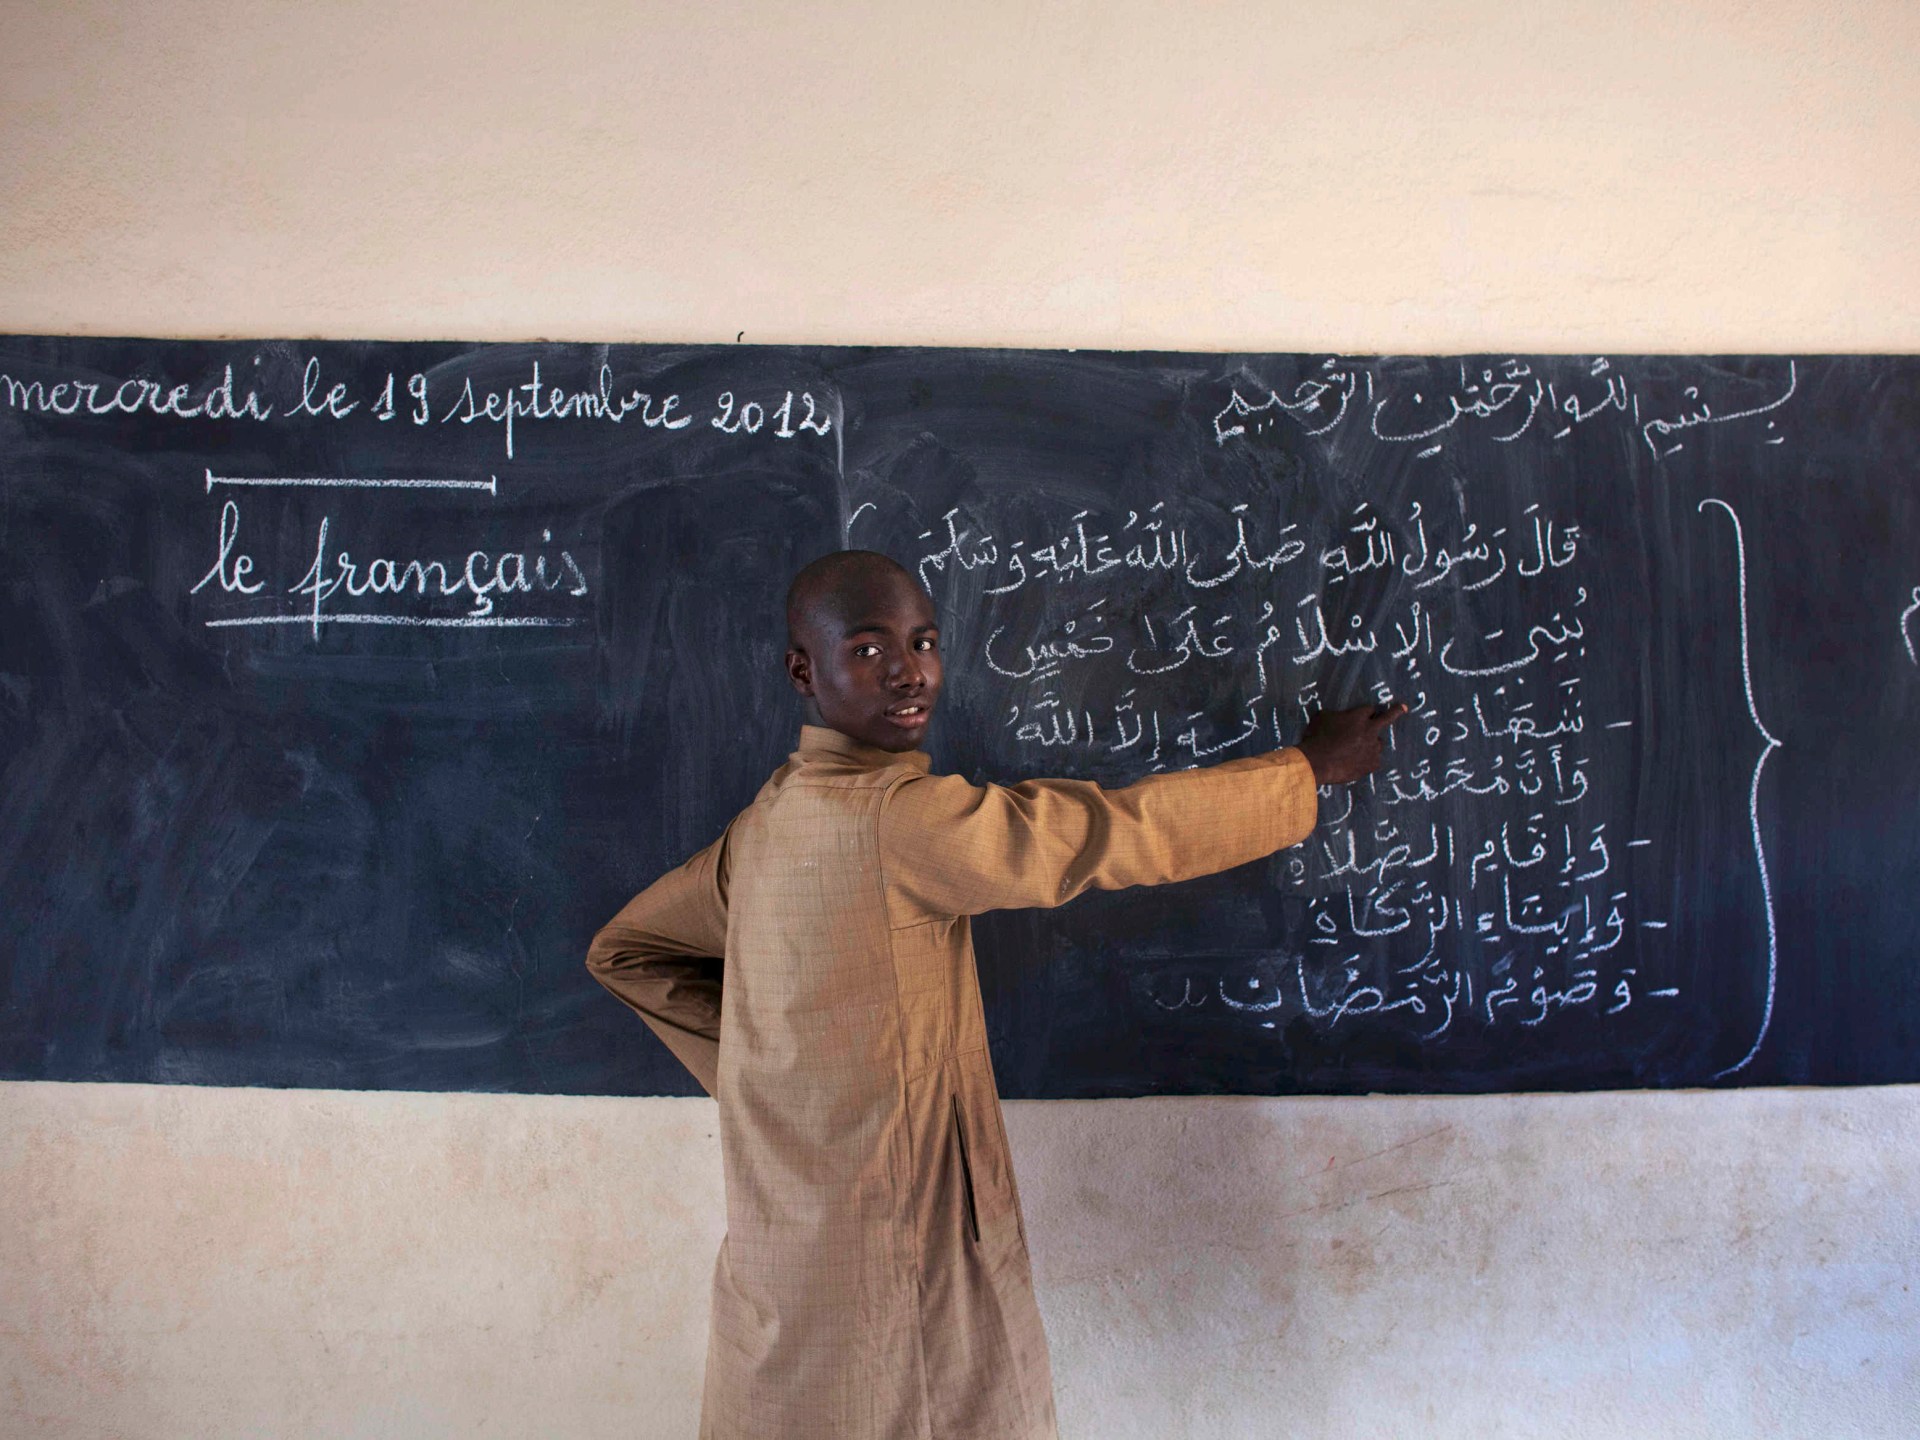 mercredi le 19 septembre 2012
le français
بِسْمِ اللَّهِ الرَّحْمَٰنِ الرَّحِيمِ
قَالَ رَسُولُ اللَّهِ صَلَّى اللَّهُ عَلَيْهِ وَسَلَّمَ
بُنِيَ الْإِسْلَامُ عَلَى خَمْسٍ
- شَهَادَةُ إِلَّا اللَّهُ
وَأَنَّ مُحَمَّدًا
- وَإِقَامِ الصَّلَاةِ
- وَإِيتَاءِ الزَّكَاةِ
- وَصَوْمِ الرَّمَضَانَ